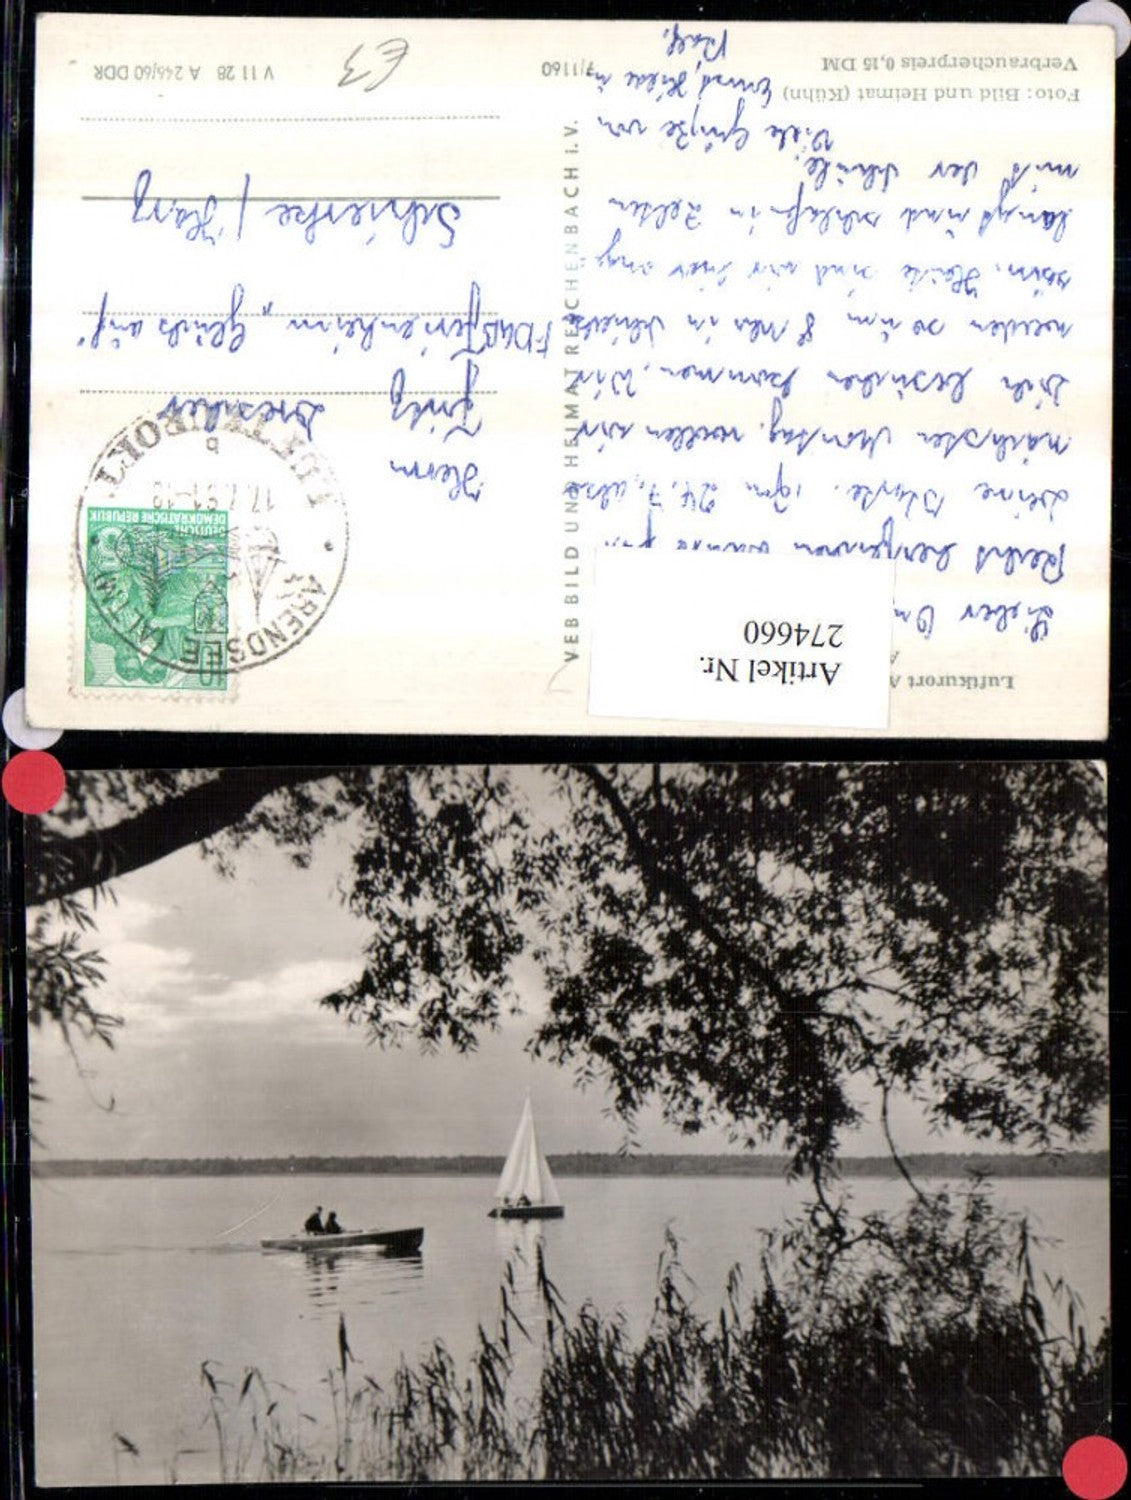 Luftkurort A
Lieber
Recht herzlichen
Deine Karte. Am 24. 7., also
nächsten Montag, wollen wir
Dich besuchen kommen. Wir
werden so um 8 Uhr in Schierke
sein. Heute sind wir hier ange-
langt und schlafen in Zelten
mit der Schule.
Viele Grüße von
Ralf.
Artikel Nr.
274660
VEB BILD UND HEIMAT REICHENBACH I. V.
Foto: Bild und Heimat (Kühn)
Verbraucherpreis 0,15 DM
7/1160
V 11 28 A 246/60 DDR
10
DEUTSCHE
DEMOKRATISCHE REPUBLIK
ARENDSEE (ALTM)
LUFTKURORT
17.7.61-18
b
Herrn
Fritz Dresdner
FDGB Ferienheim „Glück auf“
Schierke / Harz
£3